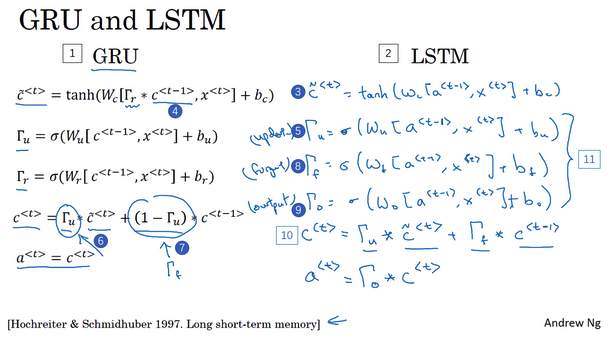 GRU and LSTM
1 GRU
c̃^<t> = tanh(W_c[Γ_r * c^<t-1>, x^<t>] + b_c)
4
Γ_u = σ(W_u[ c^<t-1>, x^<t>] + b_u)
Γ_r = σ(W_r[ c^<t-1>, x^<t>] + b_r)
c^<t> = Γ_u * c̃^<t> + (1 − Γ_u) * c^<t-1>
6 7
a^<t> = c^<t>
Γ_f
2 LSTM
3 c̃^<t> = tanh(W_c[a^<t-1>, x^<t>] + b_c)
(update) 5 Γ_u = σ(W_u[a^<t-1>, x^<t>] + b_u)
(forget) 8 Γ_f = σ(W_f[a^<t-1>, x^<t>] + b_f)
11
(output) 9 Γ_o = σ(W_o[a^<t-1>, x^<t>] + b_o)
10 c^<t> = Γ_u * c̃^<t> + Γ_f * c^<t-1>
a^<t> = Γ_o * c^<t>
[Hochreiter & Schmidhuber 1997. Long short-term memory] ←
Andrew Ng